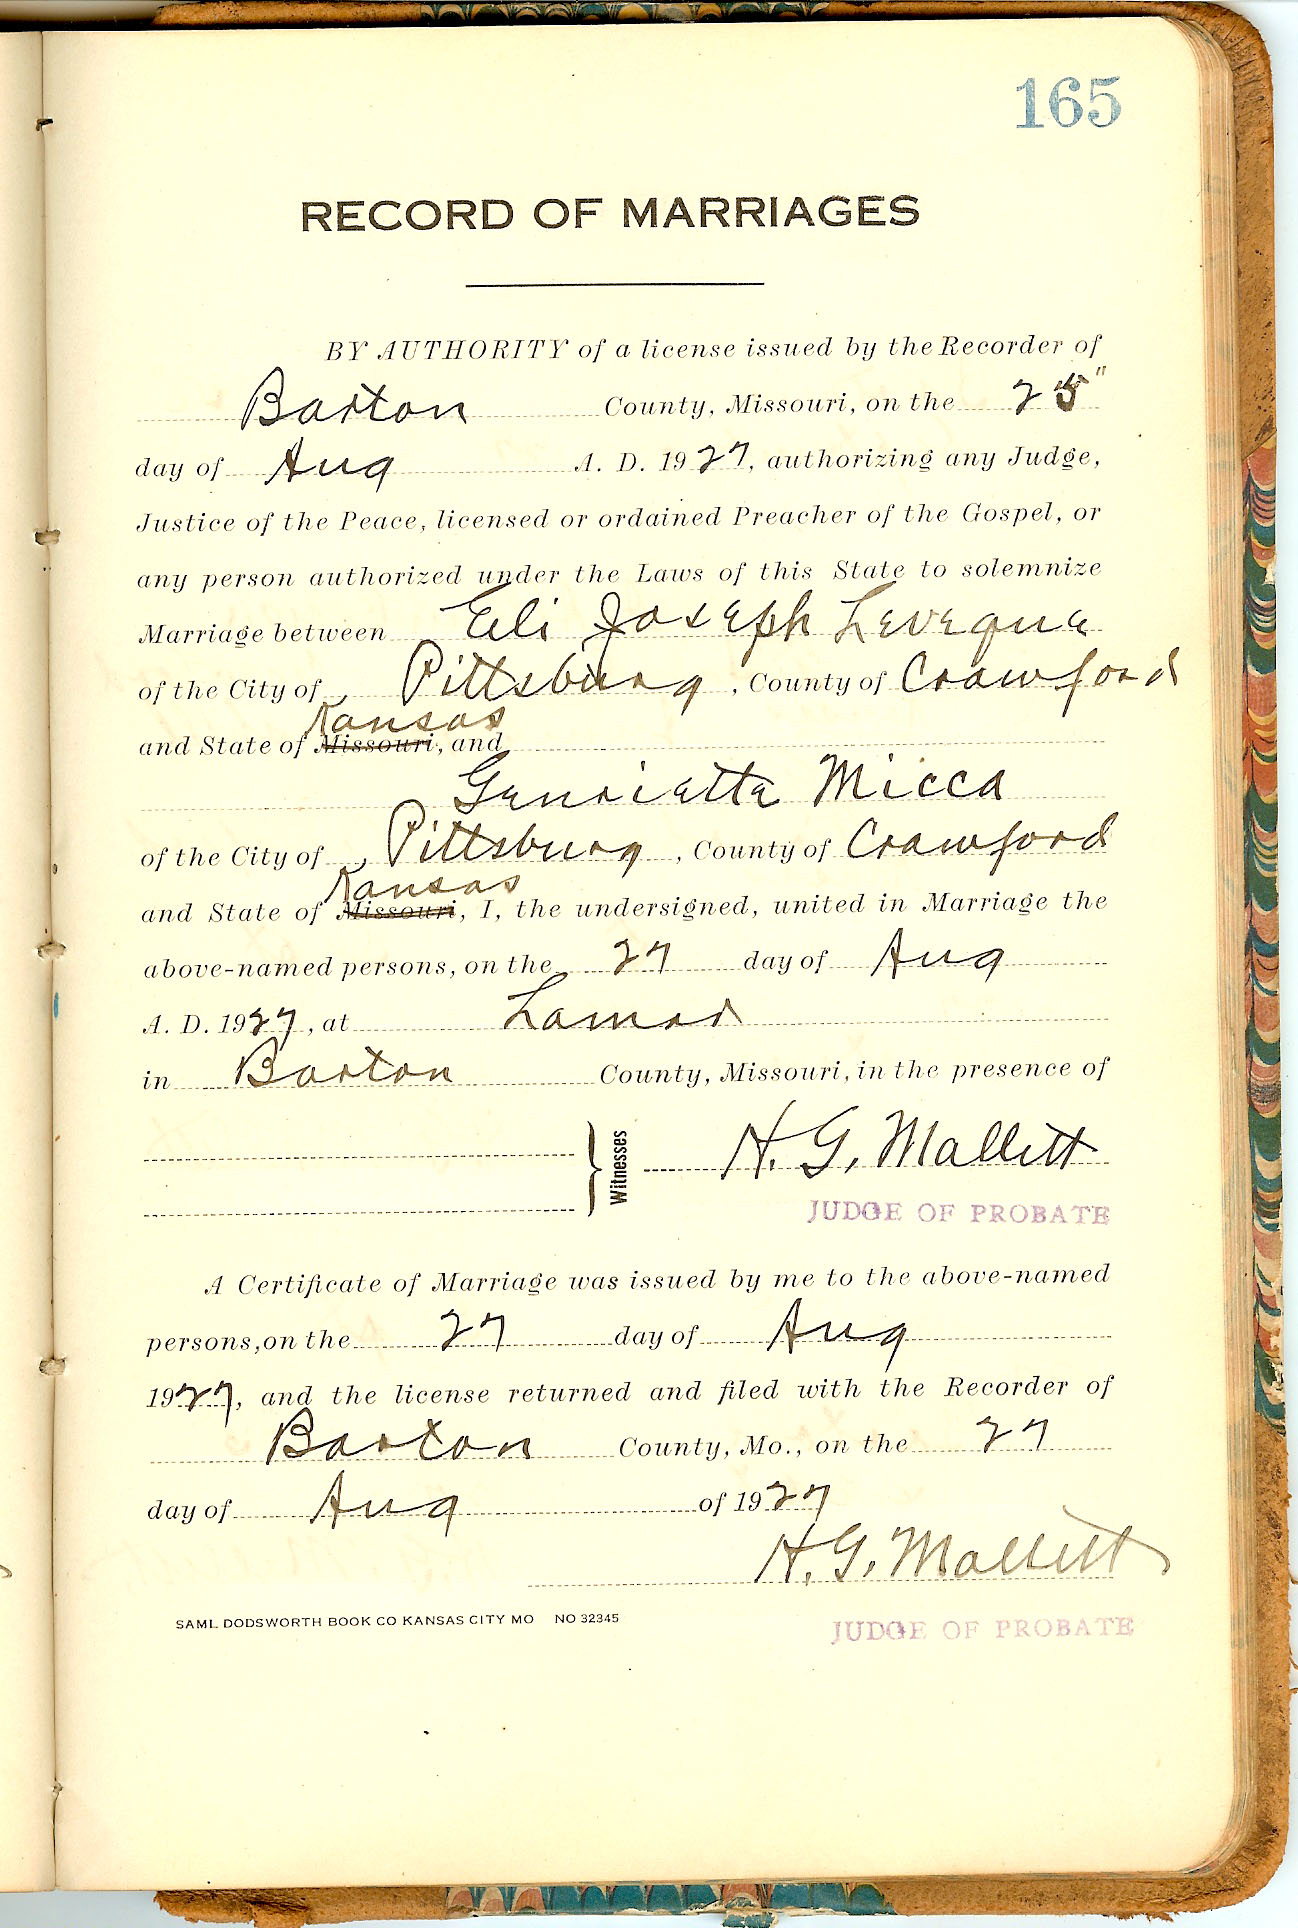 165
RECORD OF MARRIAGES
BY AUTHORITY of a license issued by the Recorder of
Barton County, Missouri, on the 25"
day of Aug A. D. 1927, authorizing any Judge,
Justice of the Peace, licensed or ordained Preacher of the Gospel, or
any person authorized under the Laws of this State to solemnize
Marriage between Eli Joseph Leveque
of the City of Pittsburg, County of Crawford
Kansas
and State of Missouri, and
Genriette Micca
of the City of Pittsburg, County of Crawford
Kansas
and State of Missouri, I, the undersigned, united in Marriage the
above-named persons, on the 27 day of Aug
A. D. 1927, at Lamar
in Barton County, Missouri, in the presence of
Witnesses H. G. Mallitt
JUDGE OF PROBATE
A Certificate of Marriage was issued by me to the above-named
persons, on the 27 day of Aug
1927, and the license returned and filed with the Recorder of
Barton County, Mo., on the 27
day of Aug of 1927
H. G. Mallitt
SAML DODSWORTH BOOK CO KANSAS CITY MO NO 32345
JUDGE OF PROBATE